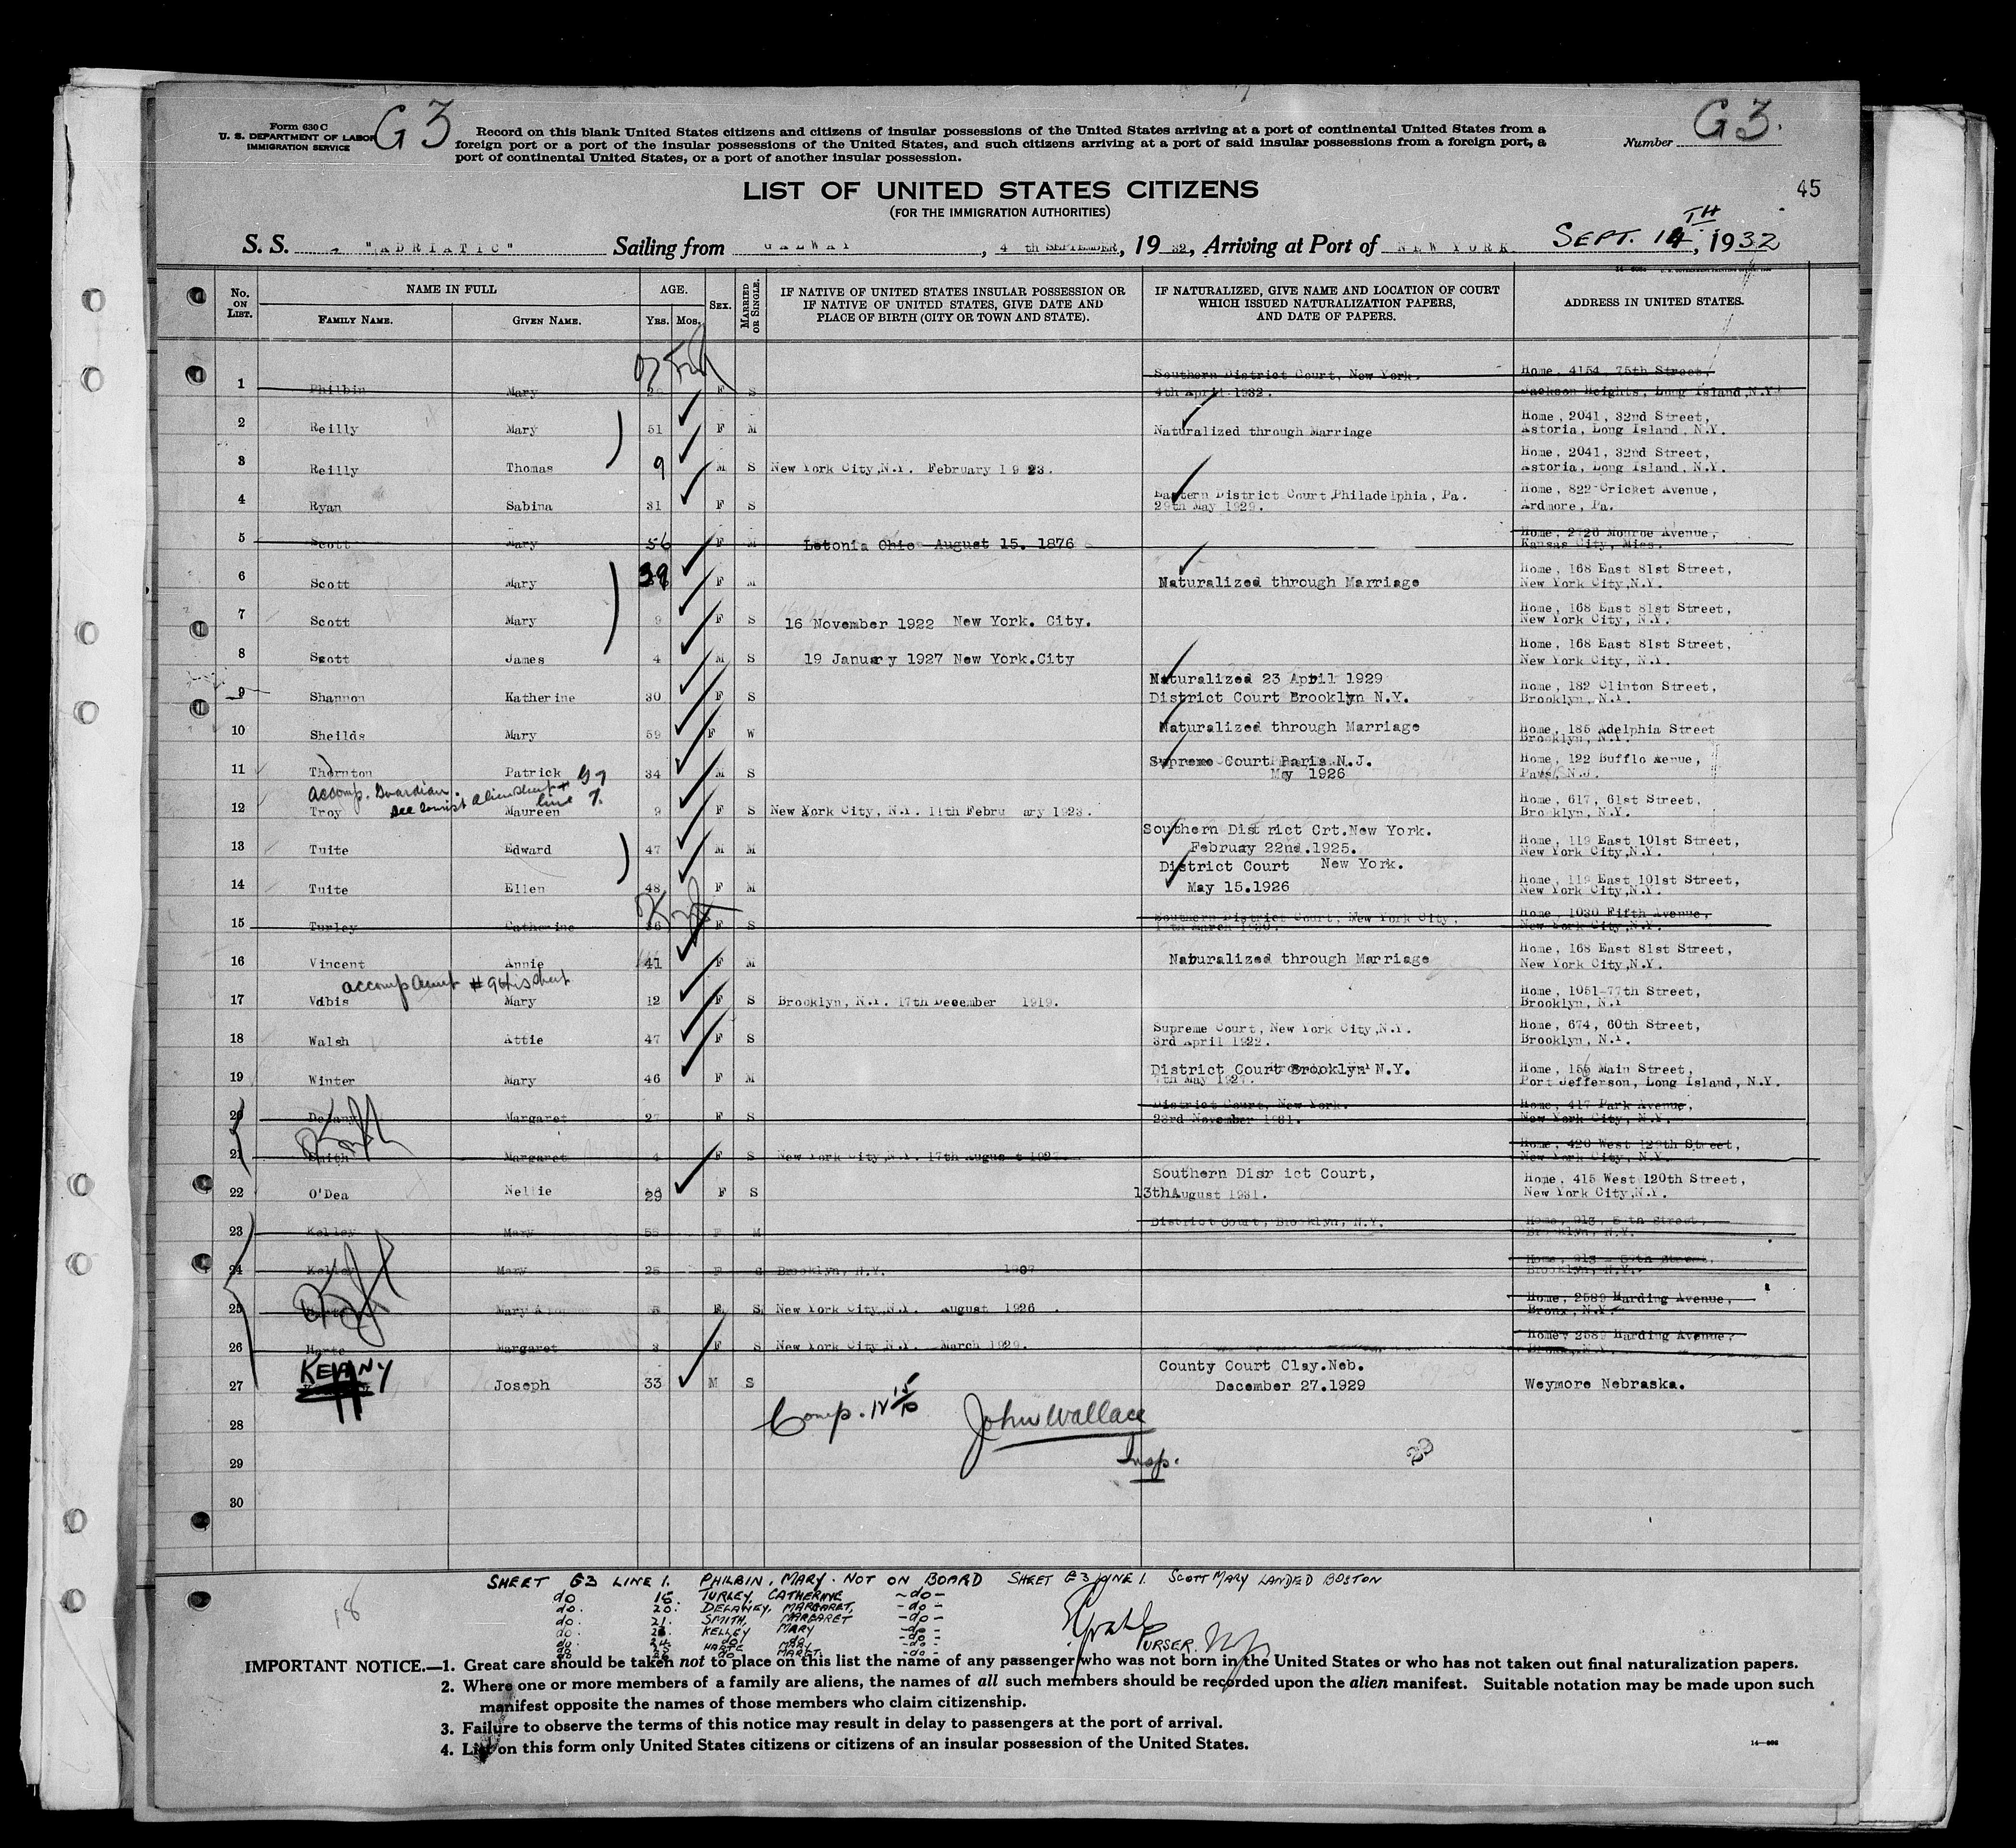 Form 630 C
U. S. DEPARTMENT OF LABOR
IMMIGRATION SERVICE
G3
Record on this blank United States citizens and citizens of insular possessions of the United States arriving at a port of continental United States from a
foreign port or a port of the insular possessions of the United States, and such citizens arriving at a port of said insular possessions from a foreign port, a
port of continental United States, or a port of another insular possession.
Number G3.
LIST OF UNITED STATES CITIZENS
(FOR THE IMMIGRATION AUTHORITIES)
45
S. S. "ADRIATIC" Sailing from GALWAY, 4 th SEPTEMBER, 19 32, Arriving at Port of NEW YORK SEPT. 14 TH, 1932
No. ON LIST. NAME IN FULL AGE. SEX. MARRIED OR SINGLE. IF NATIVE OF UNITED STATES INSULAR POSSESSION OR IF NATIVE OF UNITED STATES, GIVE DATE AND PLACE OF BIRTH (CITY OR TOWN AND STATE). IF NATURALIZED, GIVE NAME AND LOCATION OF COURT WHICH ISSUED NATURALIZATION PAPERS, AND DATE OF PAPERS. ADDRESS IN UNITED STATES.
FAMILY NAME. GIVEN NAME. YRS. MOS.
1 Philbin Mary F S Southern District Court, New York. 4th April 1932. Home, 4154, 75th Street, Jackson Heights, Long Island, N.Y.
2 Reilly Mary 51 F M Naturalized through Marriage Home, 2041, 32nd Street, Astoria, Long Island, N.Y.
3 Reilly Thomas 9 M S New York City, N.Y. February 1923. Home, 2041, 32nd Street, Astoria, Long Island, N.Y.
4 Ryan Sabina 31 F S Eastern District Court Philadelphia, Pa. 29th May 1929. Home, 822 Cricket Avenue, Ardmore, Pa.
5 Scott Mary 56 F M Letonia Ohio August 15. 1876 Home, 2726 Monroe Avenue, Kansas City, Miss.
6 Scott Mary 39 F M Naturalized through Marriage Home, 168 East 81st Street, New York City, N.Y.
7 Scott Mary 9 F S 16 November 1922 New York. City. Home, 168 East 81st Street, New York City, N.Y.
8 Scott James 4 M S 19 January 1927 New York.City Home, 168 East 81st Street, New York City, N.Y.
9 Shannon Katherine 30 F S Naturalized 23 April 1929 District Court Brooklyn N.Y. Home, 182 Clinton Street, Brooklyn, N.Y.
10 Sheilds Mary 59 F W Naturalized through Marriage Home, 185 Adelphia Street Brooklyn, N.Y.
11 Thornton Patrick 34 M S Supreme Court Paris N.J. May 1926 Home, 122 Bufflo Aenue, N.J.
accomp. Guardian. see tourist alien sheet G7 line 7.
12 Troy Maureen 9 F S New York City, N.Y. 11th February 1923. Home, 617, 61st Street, Brooklyn, N.Y.
13 Tuite Edward 47 M M Southern District Crt.New York. February 22nd.1925. Home, 119 East 101st Street, New York City, N.Y.
14 Tuite Ellen 48 F M District Court New York. May 15.1926 Home, 119 East 101st Street, New York City, N.Y.
15 Turley Catherine 36 F S Southern District Court, New York City, March 1930. Home, 1030 Fifth Avenue, New York City, N.Y.
16 Vincent Annie 41 F M Naturalized through Marriage Home, 168 East 81st Street, New York City, N.Y.
accomp Aunt #9 this sheet
17 Mary 12 F S Brooklyn, N.Y. 17th December 1919. Home, 1051-77th Street, Brooklyn, N.Y
18 Walsh Attie 47 F S Supreme Court, New York City, N.Y. 3rd April 1922. Home, 674, 60th Street, Brooklyn, N.Y.
19 Winter Mary 46 F M District Court Brooklyn N.Y. 7th May 1927. Home, 156 Main Street, Port Jefferson, Long Island, N.Y.
20 Delany Margaret 27 F S District Court, New York. 23rd November 1931. Home, 417 Park Avenue, New York City, N.Y.
21 Smith Margaret 4 F S New York City, N.Y. 17th August 1927. Home, 420 West 129th Street, New York City, N.Y.
22 O'Dea Nellie 29 F S Southern District Court, 13th August 1931. Home, 415 West 120th Street, New York City, N.Y.
23 Kelley Mary 58 F M District Court, Brooklyn, N.Y. Home, 913, 59th Street, Brooklyn, N.Y.
24 Kelley Mary 25 F S Brooklyn, N.Y. 1907 Home, 913 - 59th Street, Brooklyn, N.Y.
25 Harte Mary F S New York City, N.Y. August 1926. Home, 2589 Harding Avenue, Bronx, N.Y.
26 Harte Margaret 3 F S New York City N.Y. March 1929. Home, 2589 Harding Avenue, Bronx, N.Y.
27 KEVANY Joseph 33 M S County Court Clay.Neb. December 27.1929 Weymore Nebraska.
28 Comp. John Wallace
29 Insp.
30
SHEET G3 LINE 1. PHILBIN, MARY. NOT ON BOARD SHEET G3 LINE 1. SCOTT MARY LANDED BOSTON
do 15 TURLEY, CATHERINE -do-
do. 20. DELANEY, MARGARET, -do-
do. 21. SMITH, MARGARET -do-
do. 23. KELLEY MARY -do-
do. 24. do. do. -do-
do 25 HARTE MARY -do-
do 26 do MARGT. -do-
PURSER.
18
IMPORTANT NOTICE.—1. Great care should be taken not to place on this list the name of any passenger who was not born in the United States or who has not taken out final naturalization papers.
2. Where one or more members of a family are aliens, the names of all such members should be recorded upon the alien manifest. Suitable notation may be made upon such
manifest opposite the names of those members who claim citizenship.
3. Failure to observe the terms of this notice may result in delay to passengers at the port of arrival.
4. List on this form only United States citizens or citizens of an insular possession of the United States.